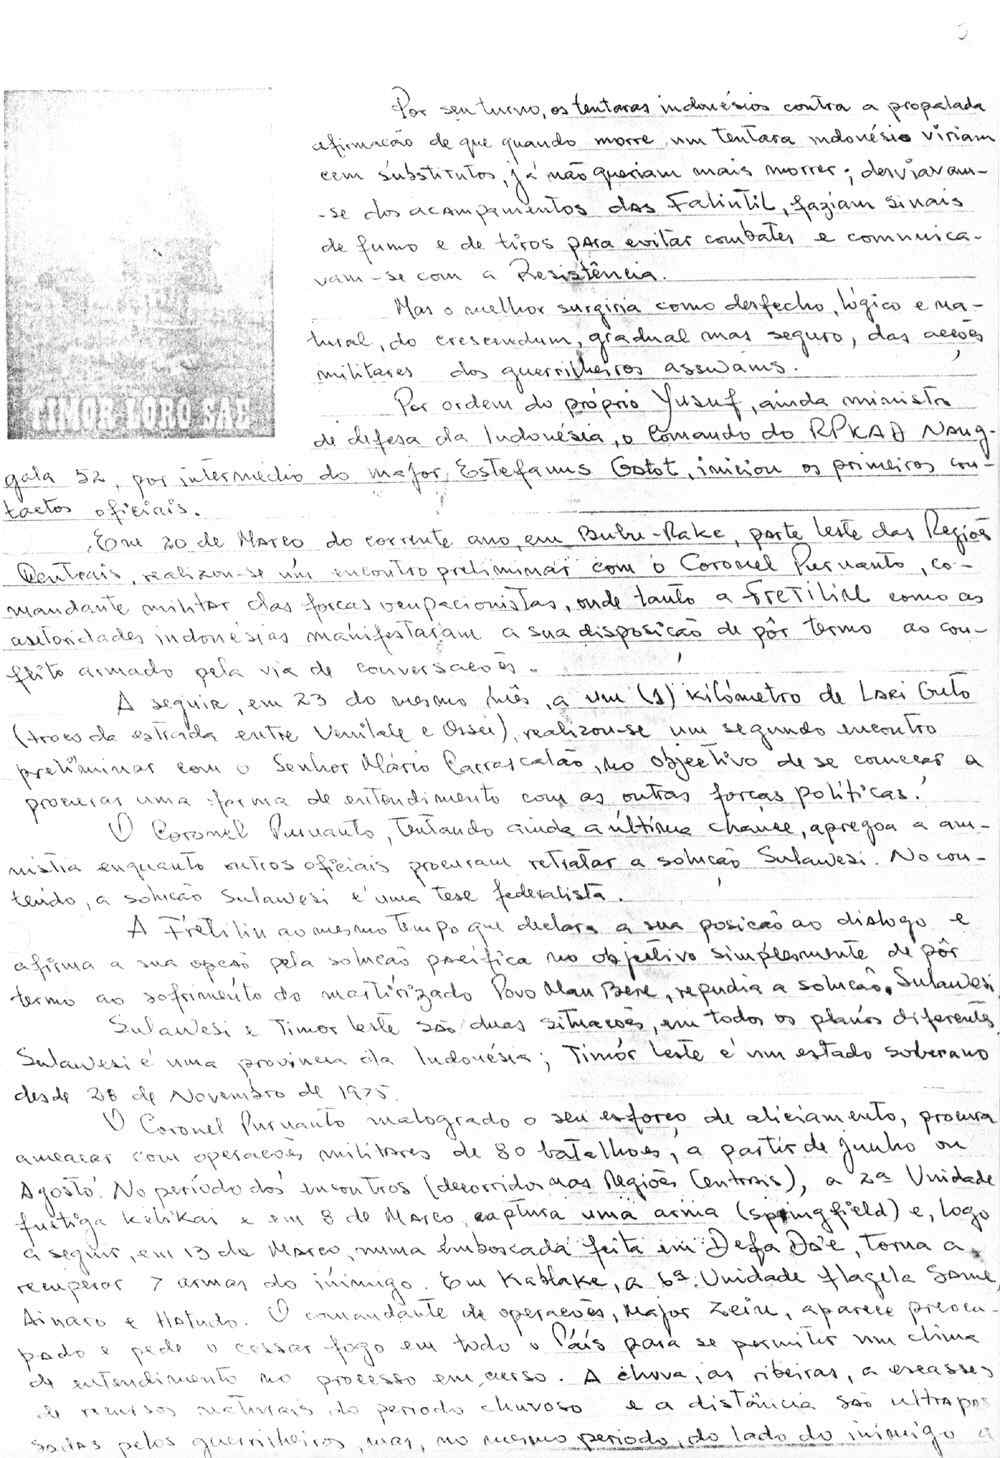 Por seu turno, os tentaras indonésios contra a propalada
afirmação de que quando morre um tentara indonésio viriam
cem substitutos, já não queriam mais morrer; desviavam-
-se dos acampamentos das Falintil, faziam sinais
de fumo e de tiros para evitar combates e comunica-
vam-se com a Resistência.
Mas o melhor surgiria como desfecho, lógico e na-
tural, do crescendum, gradual mas seguro, das acções
militares dos guerrilheiros asswains.
TIMOR LORO SAE
Por ordem do próprio Yusuf, ainda ministro
de defesa da Indonésia, o Comando do RPKAD Nang-
gala 52, por intermédio do major, Estefanus Gatot, iniciou os primeiros con-
tactos oficiais.
Em 20 de Março do corrente ano, em Bubu-Rake, parte leste das Regiões
Centrais, realizou-se um encontro preliminar com o Coronel Purwanto, co-
mandante militar das forças ocupacionistas, onde tanto a FRETILIN como as
autoridades indonésias manifestaram a sua disposição de pôr termo ao con-
flito armado pela via de conversações.
A seguir, em 23 do mesmo mês, a um (1) kilómetro de Lari Guto
(troço da estrada entre Venilale e Ossú), realizou-se um segundo encontro
preliminar com o Senhor Mário Carrascalão, no objectivo de se começar a
procurar uma forma de entendimento com as outras forças políticas.
O Coronel Purwanto, tentando ainda a última chance, apregoa a am-
nistia enquanto outros oficiais procuram retratar a solução Sulawesi. No con-
tendo, a solução Sulawesi é uma tese federalista.
A Fretilin ao mesmo tempo que declara a sua posição ao diálogo e
afirma a sua opção pela solução pacífica no objetivo simplesmente de pôr
termo ao sofrimento do martirizado Povo Mau Bere, repudia a solução Sulawesi.
Sulawesi e Timor Leste são duas situações, em todos os planos diferentes.
Sulawesi é uma província da Indonésia; Timór Leste é um estado soberano
desde 28 de Novembro de 1975.
O Coronel Purwanto malogrado o seu esforço de aliciamento, procura
ameaçar com operações militares de 80 batalhões, a partir de junho ou
Agosto. No período dos encontros (decorridos nas Regiões Centrais), a 2ª Unidade
fustiga Kelikai e em 8 de Março, captura uma arma (springfield) e, logo
a seguir, em 13 de Março, numa emboscada feita em Defa Da'e, torna a
recuperar 7 armas do inimigo. Em Kablake, a 6ª Unidade flagela Same,
Ainaro e Hatudo. O comandante de operações, Major Zein, aparece preocu-
pado e pede o cessar fogo em todo o País para se permitir um clima
de entendimento no processo em curso. A chuva, as ribeiras, a escasses
de recursos naturais do período chuvoso e a distância são ultrapas
sadas pelos guerrilheiros, mas, no mesmo período, do lado do inimigo a